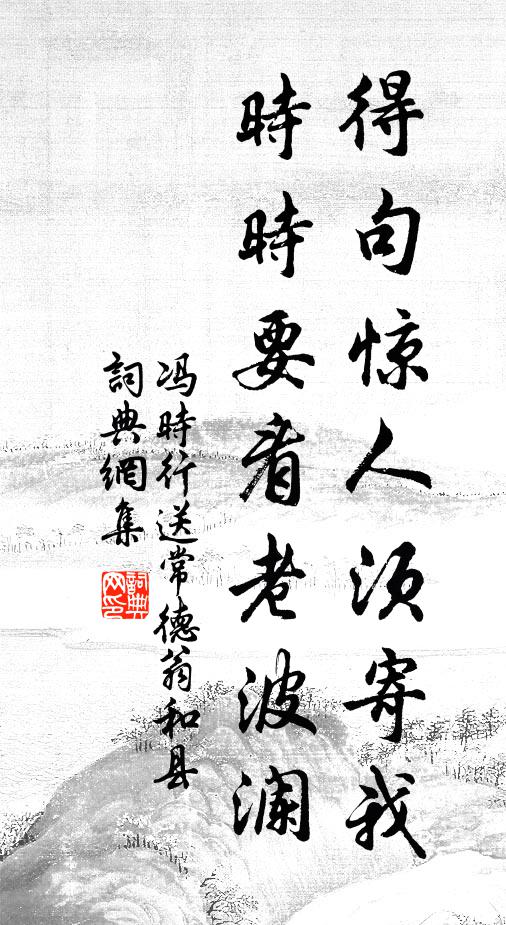 得句惊人须寄我
時時要看老波澜
冯時行送常德翁和县
詞典網集
詞典网印